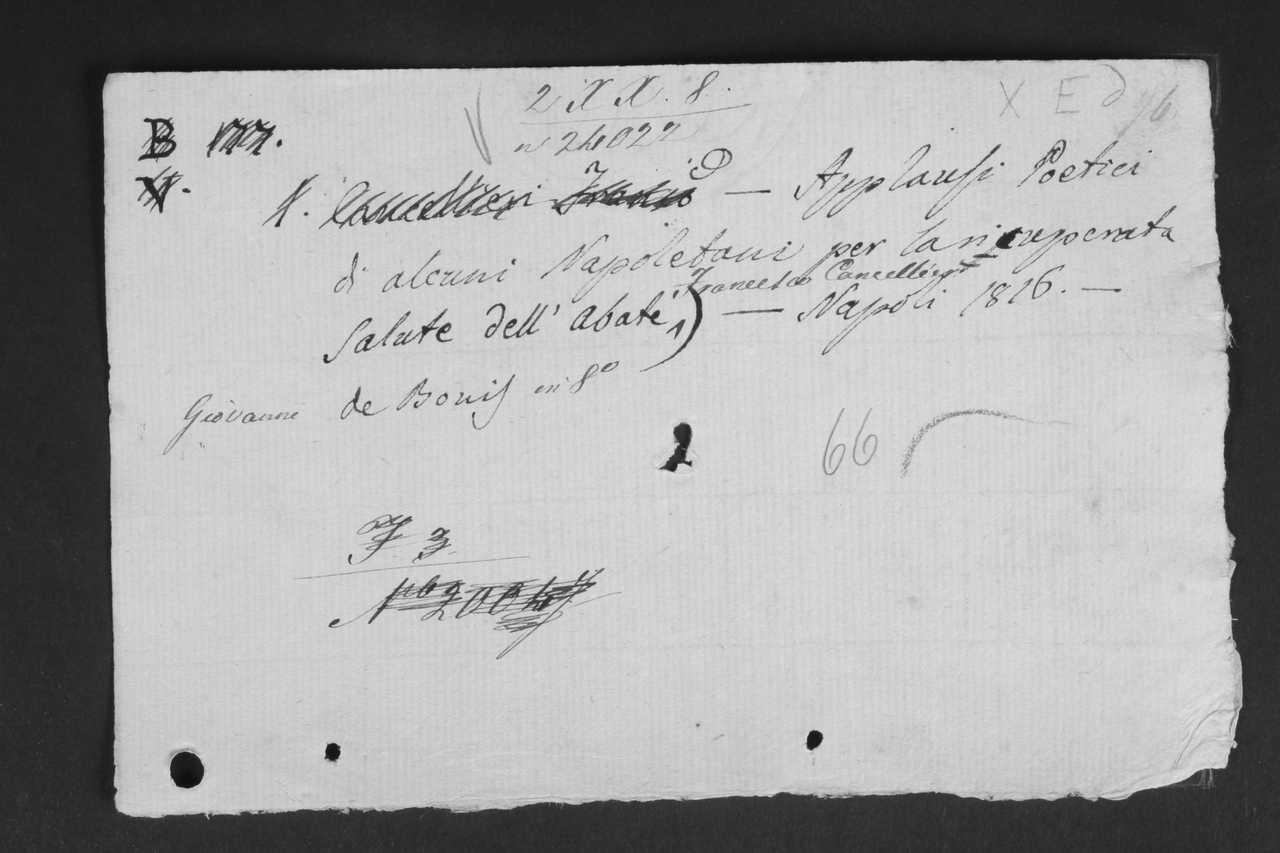 2 X X. 8.
n 24022
X E d 96
B
V.
Cancellieri — Applausi Poetici
di alcuni Napoletani per la ricuperata
Salute dell' Abate Francesco Cancellieri — Napoli 1816. —
Giovanni de Bonis in 8º
66
F 3
Nº 2004